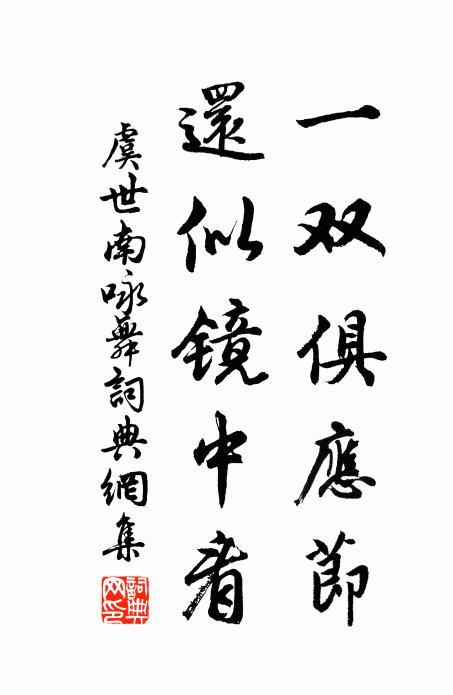 一双俱應節
還似镜中看
虞世南咏舞詞典網集
詞典
网印